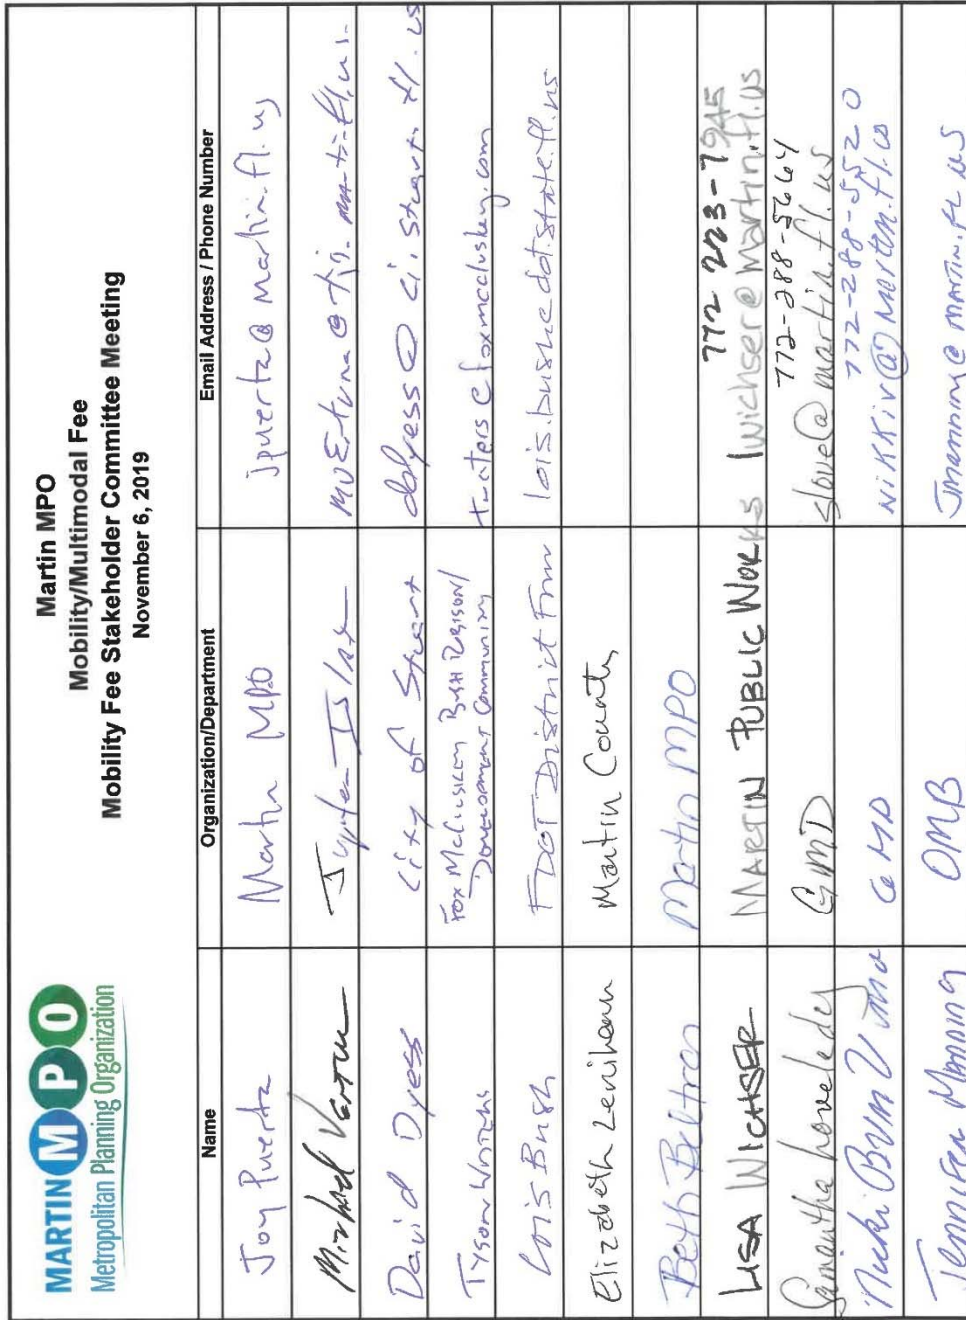 MARTIN MPO
Metropolitan Planning Organization
Martin MPO
Mobility/Multimodal Fee
Mobility Fee Stakeholder Committee Meeting
November 6, 2019
Name Organization/Department Email Address / Phone Number
Joy Puerta Martin MPO jpuerta@martin.fl.us
Michael Jupiter Island
David Dyess City of Stuart ddyess@ci.stuart.fl.us
Tyson Fox McCluskey Bush Robison/
Development Community
twaters@foxmccluskey.com
Lois Bush FDOT District Four lois.bush@dot.state.fl.us
Elizabeth Lenihan Martin County
Beth Beltran Martin MPO
772 223-7945
LISA WICHSER MARTIN PUBLIC WORKS lwichser@martin.fl.us
772-288-5664
Samantha Lovelady GMD slovela@martin.fl.us
772-288-5520
Nicki GMD nikkiv@martin.fl.us
Jennifer Manning OMB Jmanning@martin.fl.us